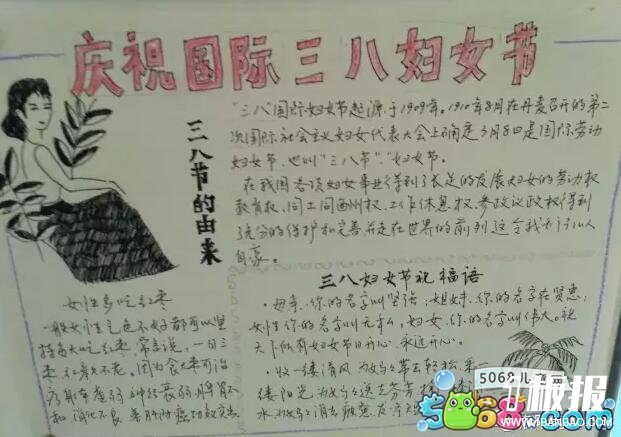 庆祝国际三八妇女节
三八节的由来
"三八"国际妇女节起源于1909年。1910年8月在丹麦召开的第二
次国际社会主义妇女代表大会上确定3月8日是国际劳动
妇女节,也叫"三八节""妇女节。
在我国各项妇女事业得到了长足的发展妇女的劳动权
教育权、同工同酬权、工作休息权、参政议政权得到
了充分的保护和完善并走在世界的前列这令我们
自豪。
三八妇女节祝福语
·母亲,你的名字叫坚强;姐妹,你的名字在贤惠;
女性你的名字叫,妇女,你的名字叫伟大。祝
天下所有妇女节日开心,永远开心。
·收一缕清风为妈妈带去轻松,采一
缕阳光为妈妈送去
水为妈妈消去疲惫
女性多吃红枣
一般女性气色不好都可以坚
持每天吃红枣,常言说,一日三
枣,红颜不老,因为食枣可治
神经衰弱、脾胃不
和、消化不良
5068儿童网
板报
5068.com
WWW.7BANBAO.COM